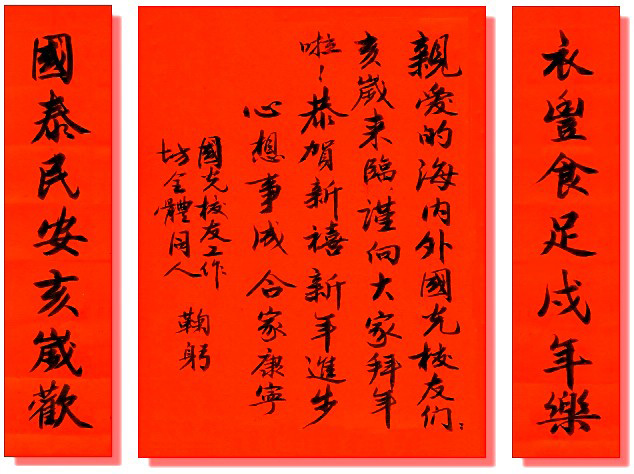 衣豐食足戌年樂
親愛的海內外國光校友们:
亥歲来臨谨向大家拜年
啦!恭賀新禧新年進步
心想事成合家康寧
國光校友工作
坊全體同人
鞠躬
國泰民安亥歲歡